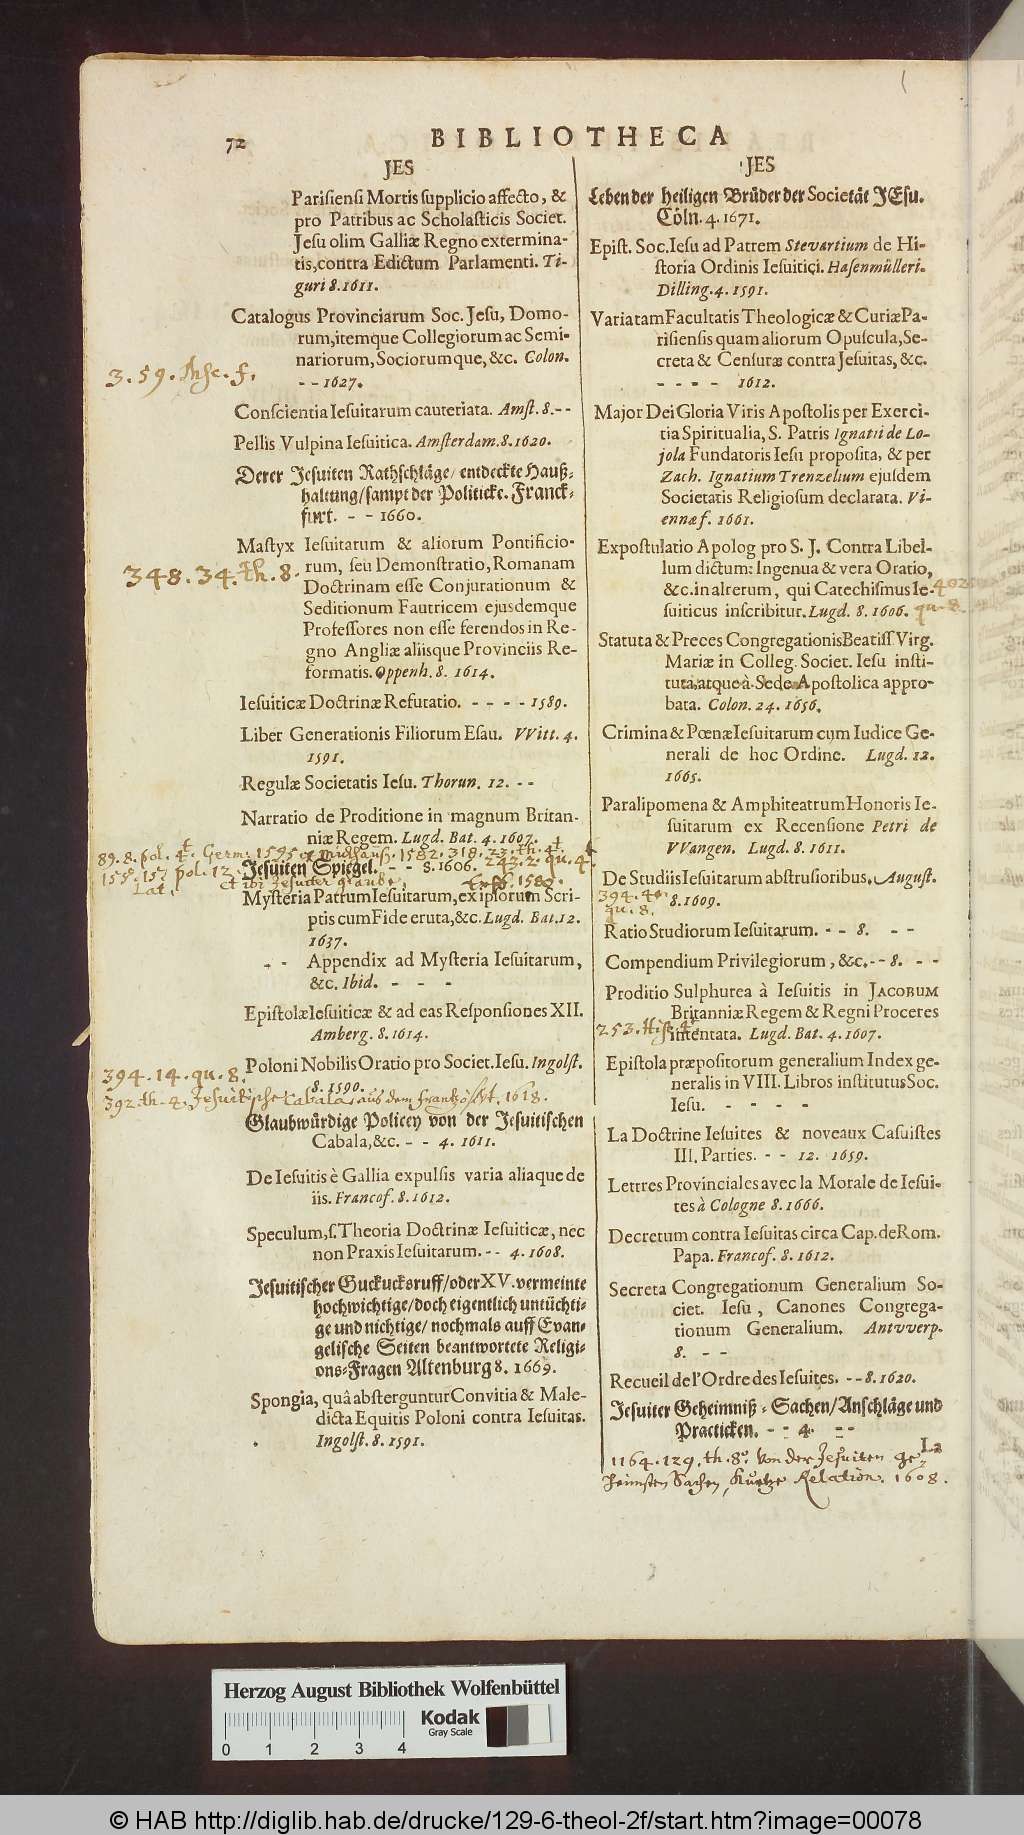 72
BIBLIOTHECA
JES
Parisiensi Mortis supplicio affecto, &
pro Patribus ac Scholasticis Societ.
Jesu olim Galliæ Regno extermina-
tis, contra Edictum Parlamenti. Ti-
guri 8. 1611.
Catalogus Provinciarum Soc. Jesu, Domo-
rum, itemque Collegiorum ac Semi-
nariorum, Sociorumque, &c. Colon.
- - 1627.
3. 59. Thse. f.
Conscientia Iesuitarum cauteriata. Amst. 8. - -
Pellis Vulpina Iesuitica. Amsterdam. 8. 1620.
Derer Jesuiten Rathschläge/ entdeckte Hauß-
haltung/ sampt der Politicke. Franck-
furt. - - 1660.
Mastyx Iesuitarum & aliorum Pontificio-
rum, seu Demonstratio, Romanam
348. 34. th. 8.
Doctrinam esse Conjurationum &
Seditionum Fautricem ejusdemque
Professores non esse ferendos in Re-
gno Angliæ aliisque Provinciis Re-
formatis. Oppenh. 8. 1614.
Iesuiticæ Doctrinæ Refutatio. - - - - 1589.
Liber Generationis Filiorum Esau. VVitt. 4.
1591.
Regulæ Societatis Iesu. Thorun. 12. - -
Narratio de Proditione in magnum Britan-
niæ Regem. Lugd. Bat. 4. 1607.
89. 8. pol. 4t. Germ. 1595 1582. 318. 23. th. 4t.
Jesuiten Spiegel. - - 8. 1606. 243. 2. qu. 4t
155. 157 pol. 12.
Lat. et ibi Jesuiter glaube, Erff. 1582.
Mysteria Patrum Iesuitarum, ex ipsorum Scri-
ptis cum Fide eruta, &c. Lugd. Bat. 12.
1637.
- - Appendix ad Mysteria Iesuitarum,
&c. Ibid. - - -
Epistolæ Iesuiticæ & ad eas Responsiones XII.
Amberg. 8. 1614.
Poloni Nobilis Oratio pro Societ. Iesu. Ingolst.
8. 1590.
394. 14. qu. 8.
392 th. 4. Jesuitische Cabala, aus dem frantzös. 1618.
Glaubwürdige Policey von der Jesuitischen
Cabala, &c. - - 4. 1611.
De Iesuitis è Gallia expulsis varia aliaque de
iis. Francof. 8. 1612.
Speculum, s. Theoria Doctrinæ Iesuiticæ, nec
non Praxis Iesuitarum. - - 4. 1608.
Jesuitischer Guckucksruff/ oder XV. vermeinte
hochwichtige/ doch eigentlich untüchti-
ge und nichtige/ nochmals auff Evan-
gelische Seiten beantwortete Religi-
ons-Fragen Altenburg 8. 1669.
Spongia, quâ absterguntur Convitia & Male-
dicta Equitis Poloni contra Iesuitas.
Ingolst. 8. 1591.
JES
Leben der Heiligen Brüder der Societät JEsu.
Cöln. 4. 1671.
Epist. Soc. Iesu ad Patrem Stevartium de Hi-
storia Ordinis Iesuitici. Hasenmülleri.
Dilling. 4. 1591.
Variatam Facultatis Theologicæ & Curiæ Pa-
risiensis quam aliorum Opuscula, Se-
creta & Censuræ contra Jesuitas, &c.
- - - - 1612.
Major Dei Gloria Viris Apostolis per Exerci-
tia Spiritualia, S. Patris Ignatii de Lo-
jola Fundatoris Iesu proposita, & per
Zach. Ignatium Trenzelium ejusdem
Societatis Religiosum declarata. Vi-
ennæ f. 1661.
Expostulatio Apolog pro S. J. Contra Libel-
lum dictum: Ingenua & vera Oratio,
&c. in alterum, qui Catechismus Ie- 402
suiticus inscribitur. Lugd. 8. 1606. qu. 8.
Statuta & Preces Congregationis Beatiss Virg.
Mariæ in Colleg. Societ. Iesu insti-
tuta, atque à Sede Apostolica appro-
bata. Colon. 24. 1656.
Crimina & Pœnæ Iesuitarum cum Iudice Ge-
nerali de hoc Ordine. Lugd. 12.
1665.
Paralipomena & Amphiteatrum Honoris Ie-
suitarum ex Recensione Petri de
VVangen. Lugd. 8. 1611.
De Studiis Iesuitarum abstrusioribus. August.
394. 40. 8. 1609.
qu. 8.
Ratio Studiorum Iesuitarum. - - 8. - -
Compendium Privilegiorum, &c. - - 8. - -
Proditio Sulphurea à Iesuitis in JACOBUM
Britanniæ Regem & Regni Proceres
253. Hist. 4t. intentata. Lugd. Bat. 4. 1607.
Epistola præpositorum generalium Index ge-
neralis in VIII. Libros institutus Soc.
Iesu. - - - -
La Doctrine Iesuites & noveaux Casuistes
III. Parties. - - 12. 1659.
Lettres Provinciales avec la Morale de Iesui-
tes à Cologne 8. 1666.
Decretum contra Iesuitas circa Cap. de Rom.
Papa. Francof. 8. 1612.
Secreta Congregationum Generalium So-
ciet. Iesu, Canones Congrega-
tionum Generalium. Antvverp.
8. - -
Recueil de l'Ordre des Iesuites. - - 8. 1620.
Jesuiter Geheimniß-Sachen/ Anschläge und
Practicken. - - 4. - -
La
1164. 129. th. 8o. Von der Jesuiten ge-
heimsten Sachen, Kurtze Relation. 1608.
Herzog August Bibliothek Wolfenbüttel
Kodak
Gray Scale
0 1 2 3 4
© HAB http://diglib.hab.de/drucke/129-6-theol-2f/start.htm?image=00078